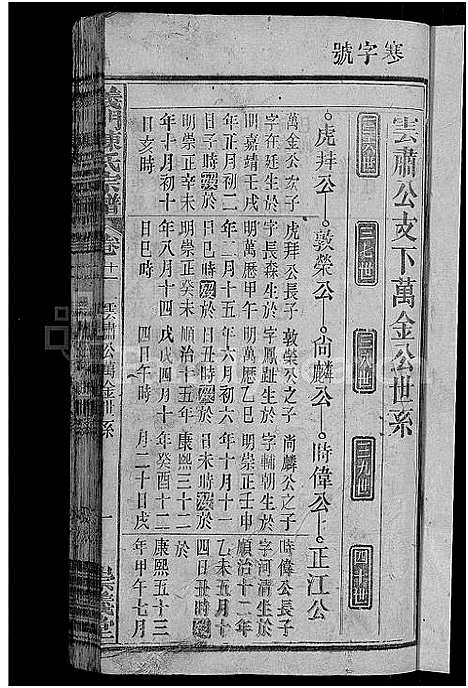 寒字號
雲肅公支下萬金公世系
三六世
三七世
三八世
三九世
四十世
虎拜公
敦榮公
尚麟公
時偉公
正江公
萬金公次子
字在廷生於
明嘉靖壬戌
年正月初二
日巳時歿於
明崇正辛未
年十月初十
日亥時
虎拜公長子
字長森生於
明萬曆甲午
年二月十五
日巳時歿於
明崇正
年八月十四
日巳時
敦榮公之子
字鳳趾生於
明萬曆乙巳
年六月初六
日丑時歿於
順治十五年
戊戌四月十
四日午時
尚麟公之子
字輔朝生於
明崇正壬午
年十月十一
日未時歿於
康熙三十二
年癸酉十二
月二十日戌
時偉公長子
字河清生於
順治十二年
乙未五月十
四日丑時歿
於
康熙五十三
年甲午七月
義門陳氏宗譜
卷十一
雲肅公萬金世系
一